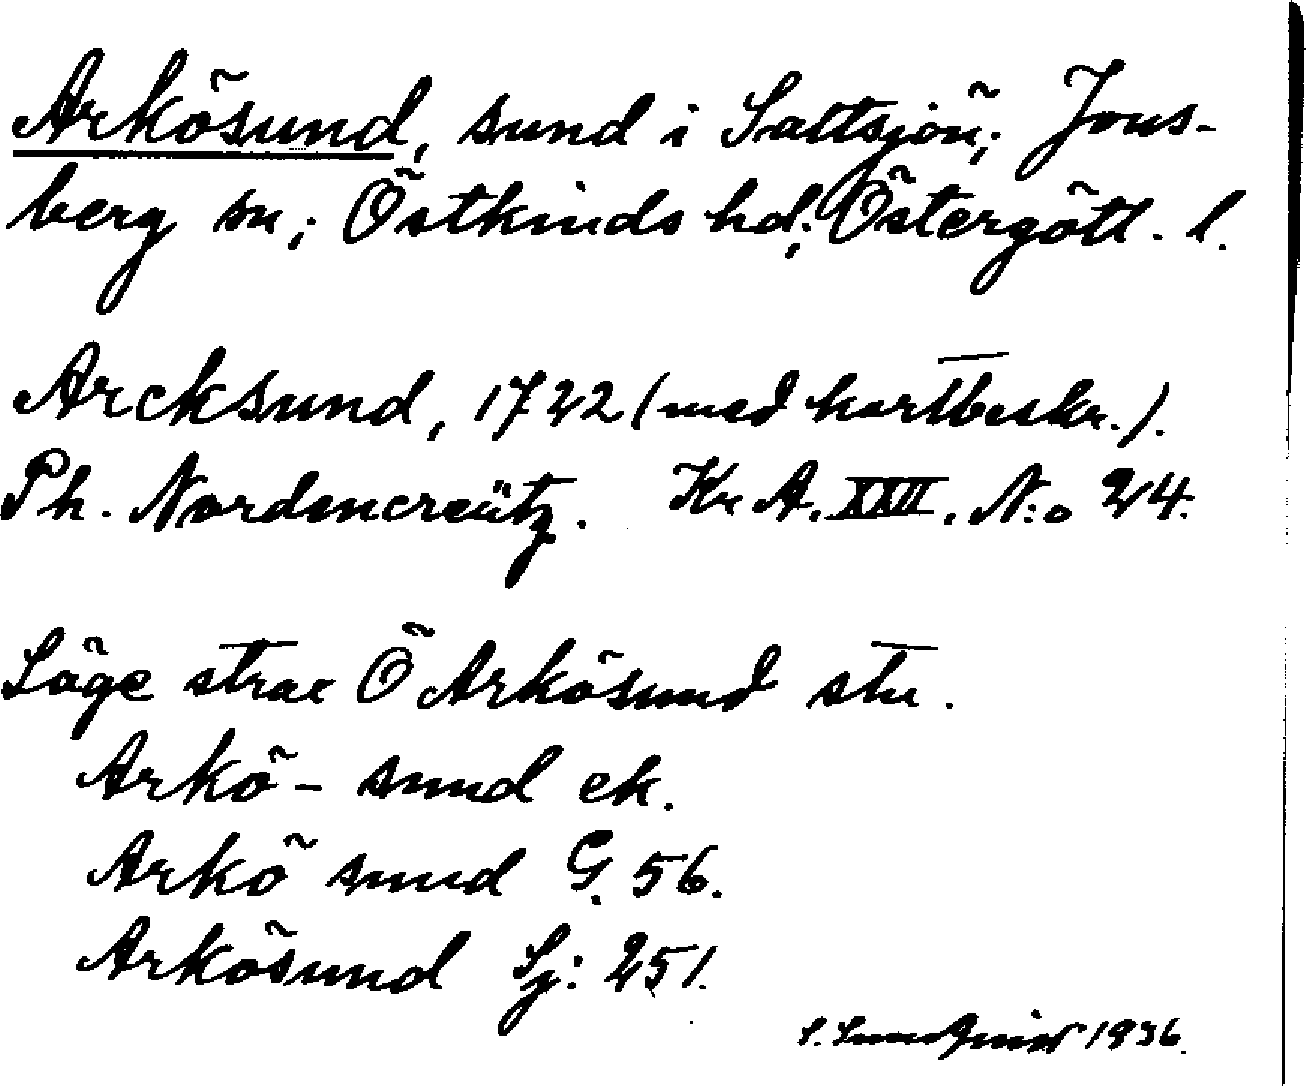 Arkösund, sund i Saltsjön; Jons-
berg sn; Östkinds hd; Östergötl. l.
Arcksund, 1722 (med kartbeskr.).
Ph. Nordencreütz. Kr A. XXII. N:o 24.
Läge strax Ö Arkösund stn.
Arkö - sund ek.
Arkö sund G. 56.
Arkösund Sj: 251.
S. Sundquist 1936.